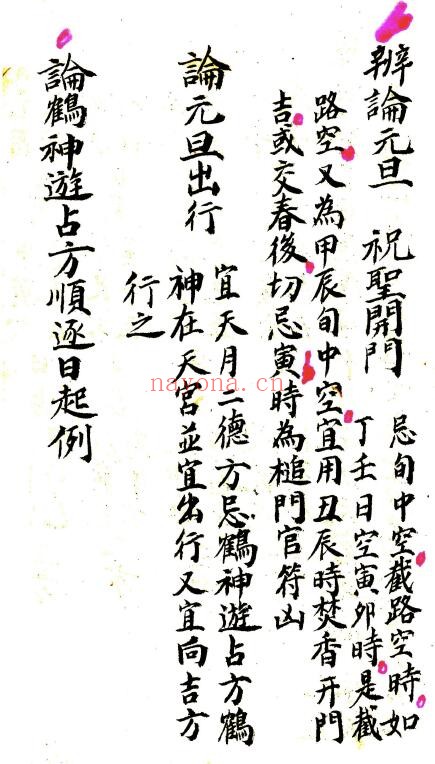 辨論元旦 祝聖開門 忌旬中空截路空時如
丁壬日空寅卯時是截
路空又為甲辰旬中空宜用丑辰時焚香开門
吉或交春後切忌寅時為槌門官符凶
論元旦出行 宜天月二德方忌鶴神遊占方鶴
神在天宮並宜出行又宜向吉方
行之
論鶴神遊占方順逐日起例
nayona.cn